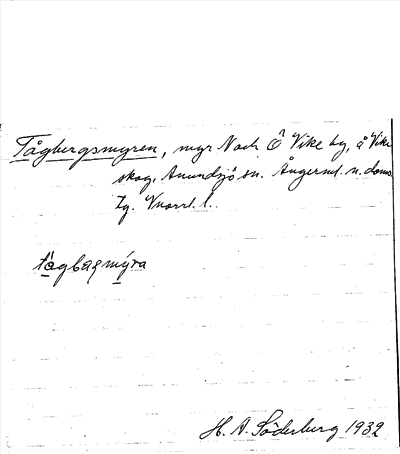 Tågbergsmyren, myr N och Ö Vike by, å Vike
skog, Anundsjö sn. Ångerml. n. doms
tg. Vnorrl. l.
tågbaqmýra
H. A. Söderberg 1932